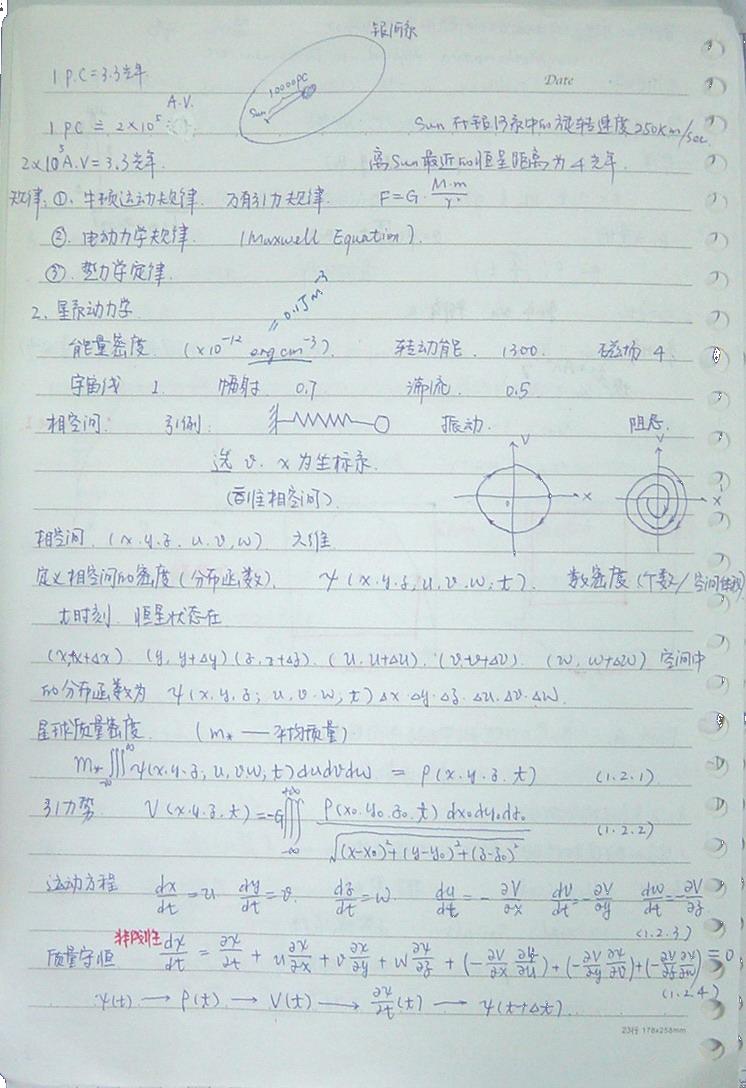 银河系
1 P.C = 3.3光年
10000PC
Sun
Date
A.V.
1 PC = 2×10⁵
Sun 在银河系中的旋转速度 250Km/sec
2×10⁵ A.V = 3.3光年.
离Sun最近的恒星距离为4光年.
规律: ①. 牛顿运动规律. 万有引力规律. F=G·M·m/r²
②. 电动力学规律. (Maxwell Equation).
③. 热力学定律.
2. 星系动力学
= 0.1J m⁻³
能量密度. (×10⁻¹² erg cm⁻³). 转动能. 1300. 磁场 4.
宇宙线 1. 辐射 0.7 湍流. 0.5
相空间: 引例: 振动. 阻尼.
选 v. x 为坐标系.
(二维相空间).
V
X
V
X
相空间. (x.y.z. u.v.w) 六维
定义相空间的密度(分布函数). ψ(x.y.z, u.v.w; t). 数密度(个数/空间体积)
t时刻. 恒星状态在
(x,x+Δx) (y, y+Δy) (z, z+Δz). (u. u+Δu). (v. v+Δv). (w, w+Δw) 空间中
的分布函数为 ψ(x.y.z; u.v.w; t) Δx·Δy·Δz. Δu. Δv. Δw.
星球质量密度. (m* — 平均质量)
m* ∭ ψ(x.y.z; u.vw; t) dudvdw = ρ(x.y.z.t) (1.2.1)
引力势 V(x.y.z.t) = -G∭ ρ(x₀.y₀.z₀.t) dx₀dy₀dz₀ / √((x-x₀)²+(y-y₀)²+(z-z₀)²) (1.2.2)
运动方程 dx/dt = u. dy/dt = v. dz/dt = w. du/dt = -∂V/∂x dv/dt = -∂V/∂y dw/dt = -∂V/∂z
(1.2.3)
非线性
质量守恒 dψ/dt = ∂ψ/∂t + u∂ψ/∂x + v∂ψ/∂y + w∂ψ/∂z + (-∂V/∂x ∂ψ/∂u) + (-∂V/∂y ∂ψ/∂v) + (-∂V/∂z ∂ψ/∂w) = 0
(1.2.4)
ψ(t) → ρ(t) → V(t) → ∂ψ/∂t(t) → ψ(t+Δt).
23行 178x258mm